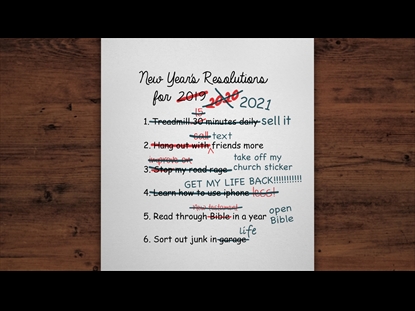 New Year's Resolutions
for 2019 2020 2021
15
1. Treadmill 30 minutes daily sell it
call text
2. Hang out with friends more
improve on take off my
3. Stop my road rage church sticker
GET MY LIFE BACK!!!!!!!!!!!
4. Learn how to use iphone less!
new testament open
5. Read through Bible in a year Bible
life
6. Sort out junk in garage